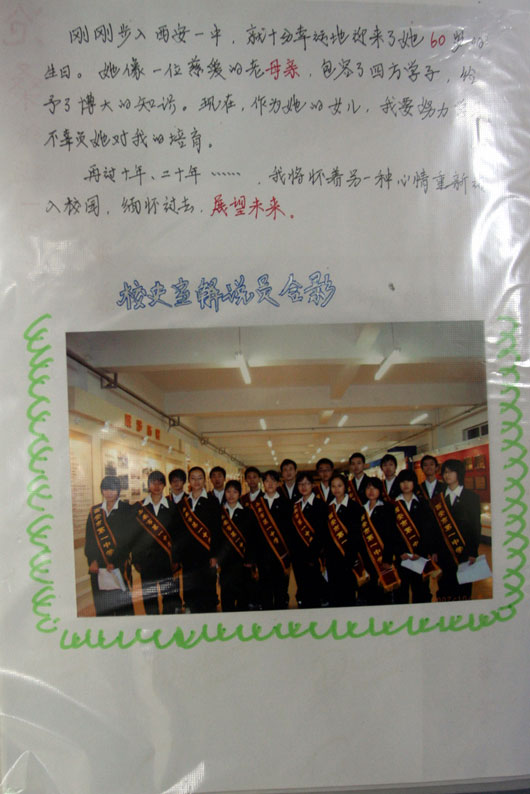 刚刚步入西安一中，就十分幸运地迎来了她60岁的
生日。她像一位慈爱的老母亲，包容了四方学子，给
予了博大的知识。现在，作为她的女儿，我要努力
不辜负她对我的培育。
再过十年、二十年……，我将怀着另一种心情重新
入校园，缅怀过去，展望未来。
校史室解说员合影